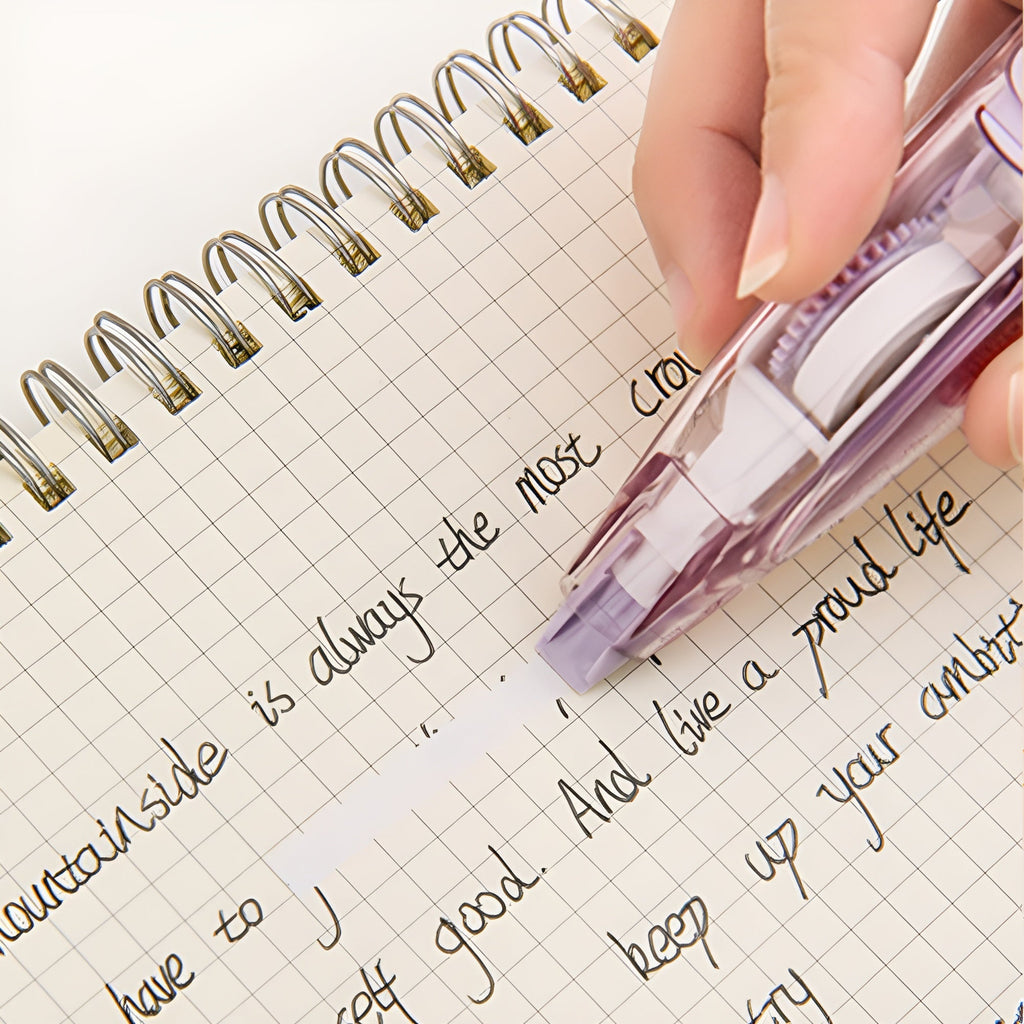 mountainside is always the most
have to
self good. And live a proud life
keep up your
try